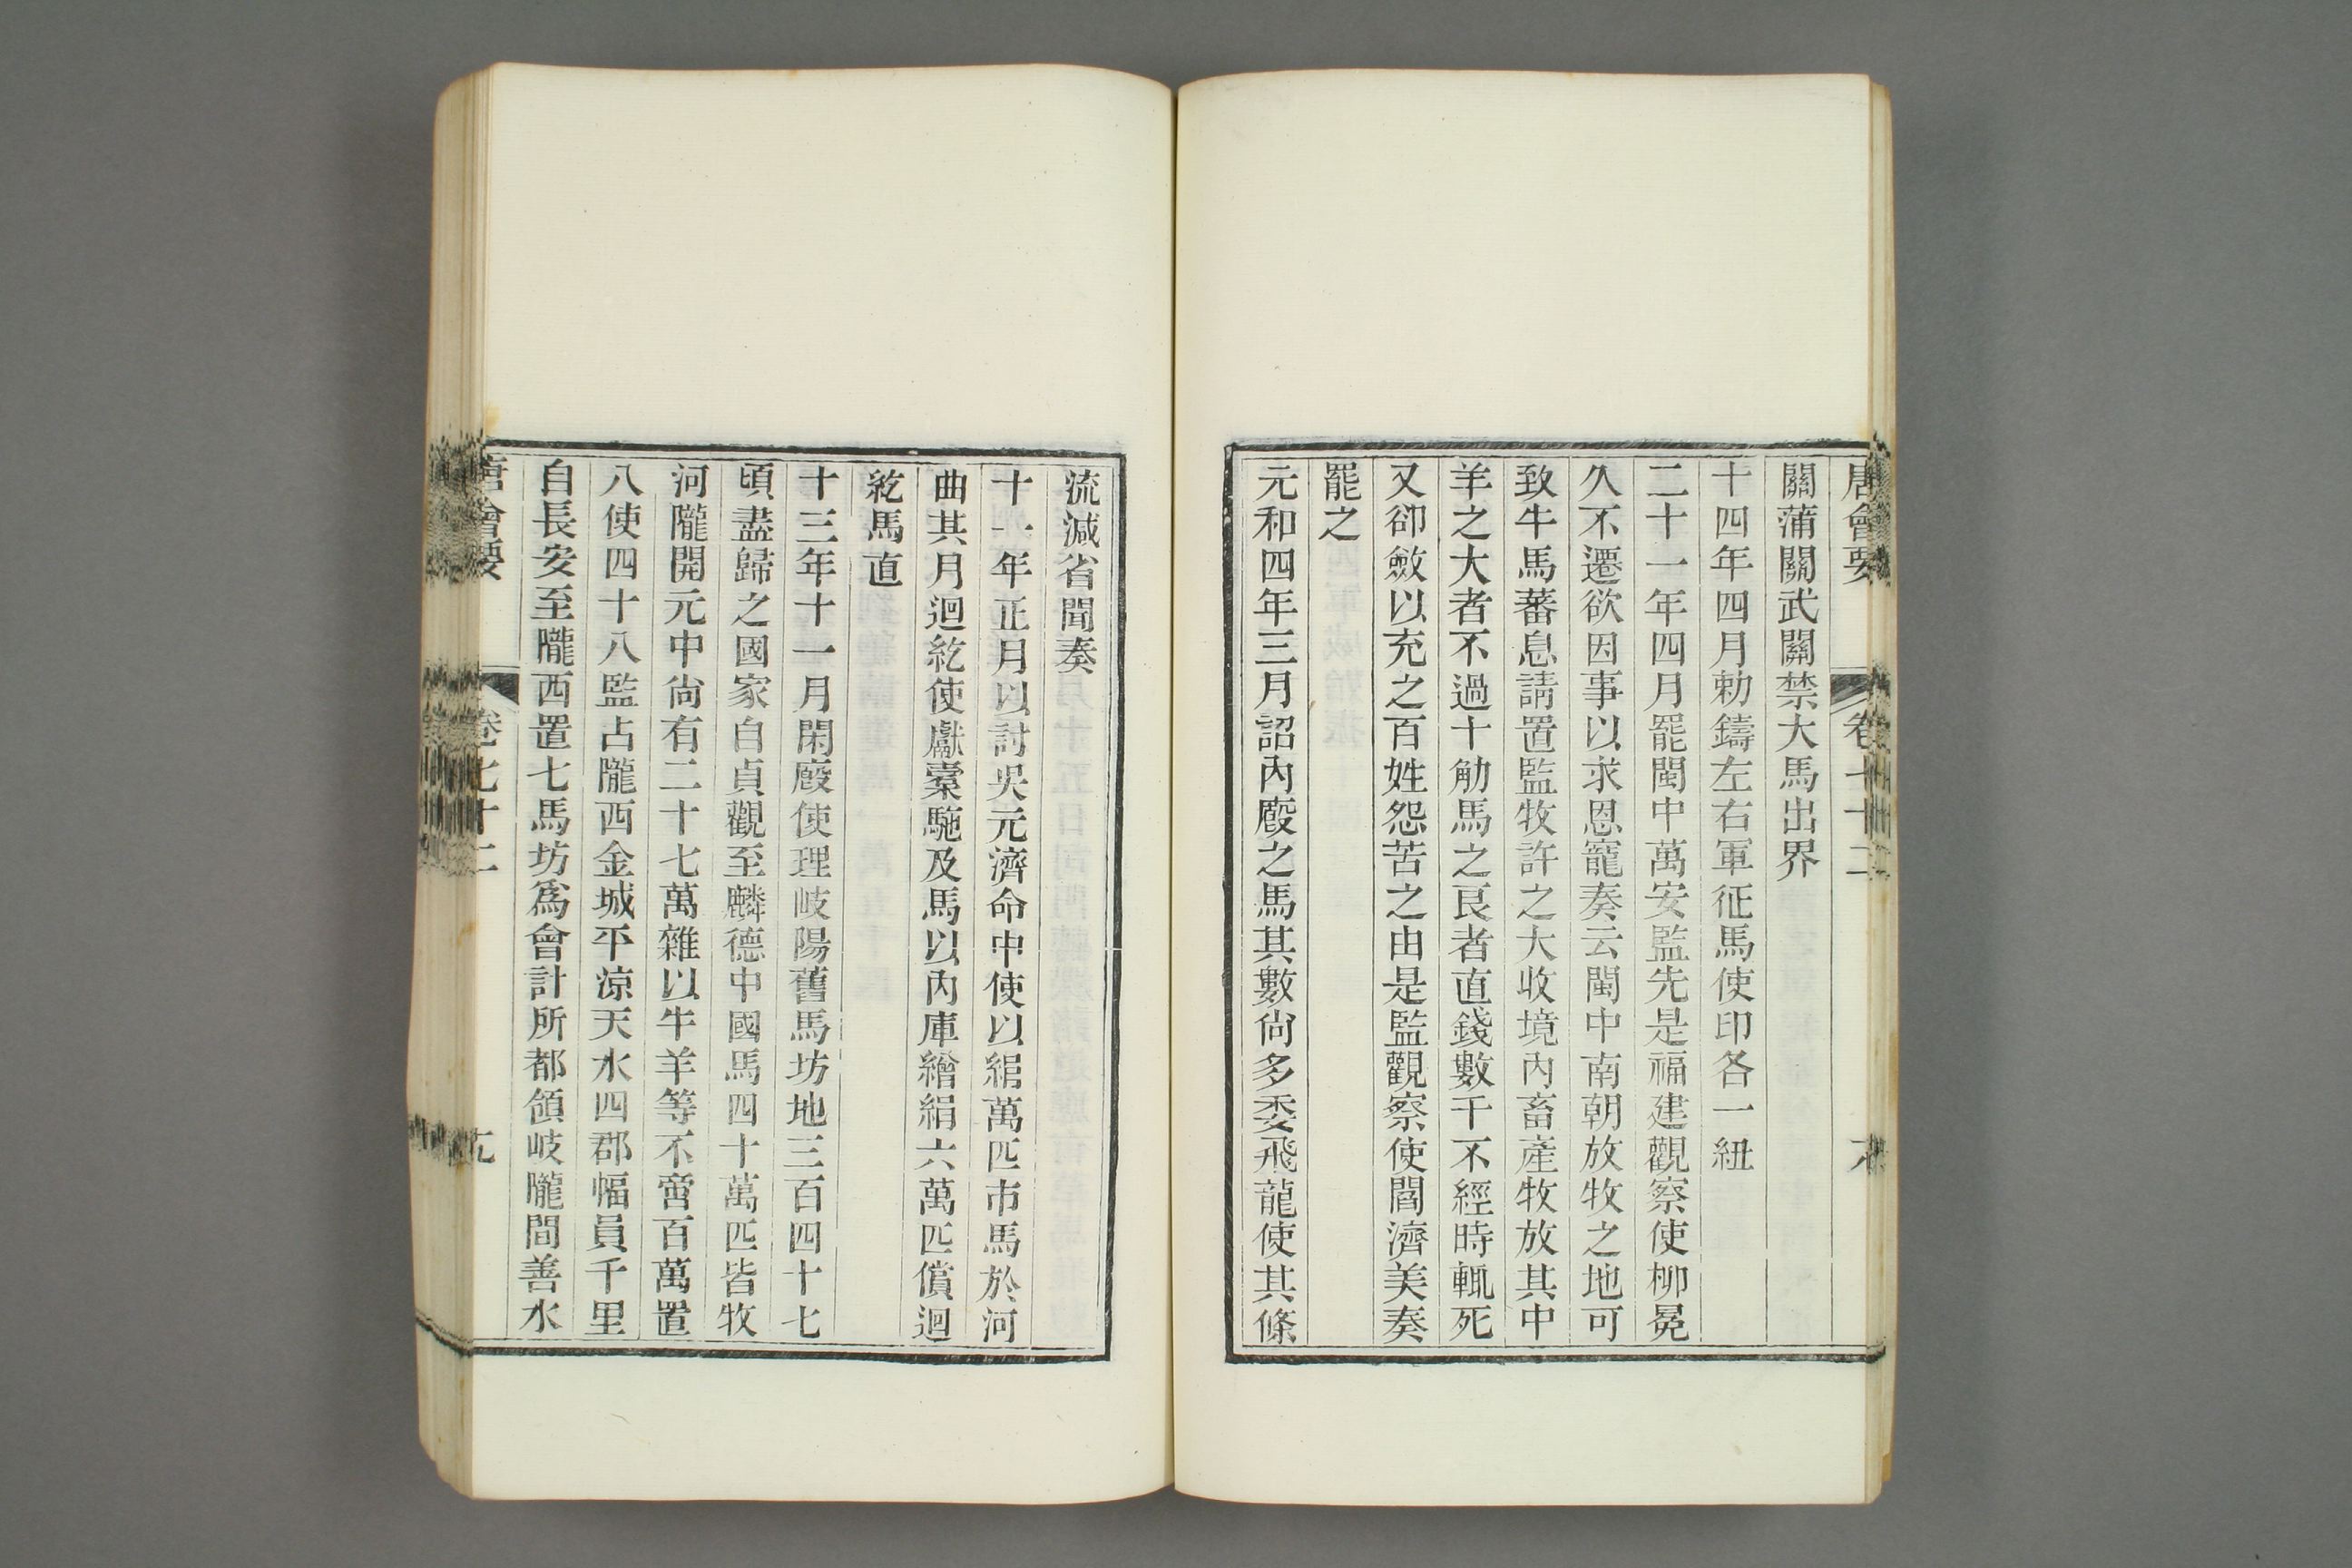 唐會要 卷七十二
關蒲關武關禁大馬出界
十四年四月勅鑄左右軍征馬使印各一紐
二十一年四月罷閩中萬安監先是福建觀察使柳冕
久不遷欲因事以求恩寵奏云閩中南朝放牧之地可
致牛馬蕃息請置監牧許之大收境內畜產牧放其中
羊之大者不過十觔馬之良者直錢數千不經時輒死
又卻斂以充之百姓怨苦之由是監觀察使閻濟美奏
罷之
元和四年三月詔內廄之馬其數尙多委飛龍使其條
流減省聞奏
十一年正月以討吳元濟命中使以絹萬匹市馬於河
曲其月迴紇使獻槖駞及馬以內庫繒絹六萬匹償迴
紇馬直
十三年十一月閑廄使理岐陽舊馬坊地三百四十七
頃盡歸之國家自貞觀至麟德中國馬四十萬匹皆牧
河隴開元中尙有二十七萬雜以牛羊等不啻百萬置
八使四十八監占隴西金城平涼天水四郡幅員千里
自長安至隴西置七馬坊爲會計所都領岐隴間善水
唐會要 卷七十二